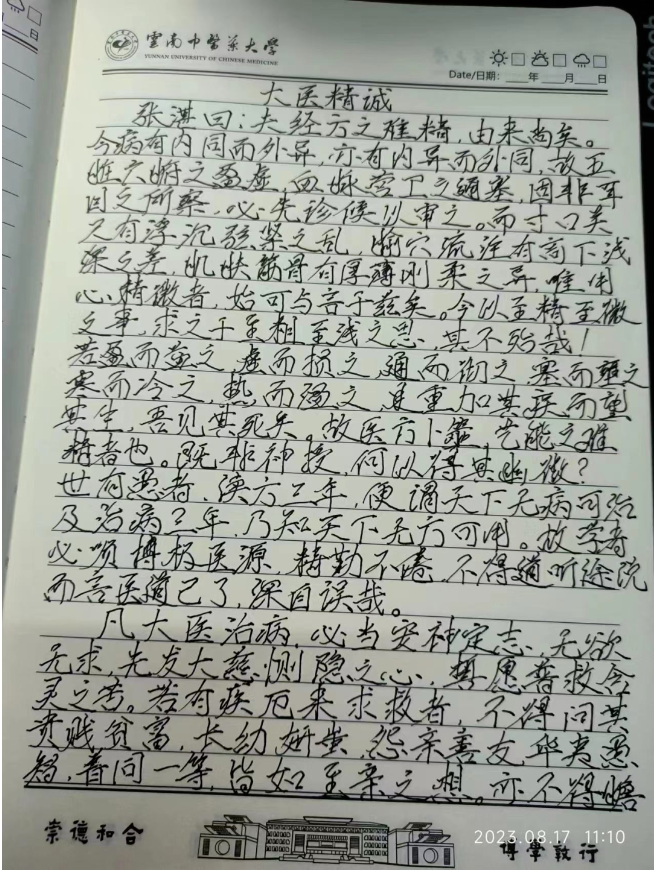 雲南中醫藥大學
YUNNAN UNIVERSITY OF CHINESE MEDICINE
Date/日期: 年 月 日
日
Logitech
大医精诚
张湛曰：夫经方之难精，由来尚矣。
今病有内同而外异，亦有内异而外同，故五
脏六腑之盈虚，血脉营卫之通塞，固非耳
目之所察，必先诊候以审之。而寸口关
尺有浮沉弦紧之乱，腧穴流注有高下浅
深之差，肌肤筋骨有厚薄刚柔之异，唯用
心精微者，始可与言于兹矣。今以至精至微
之事，求之于至粗至浅之思，其不殆哉！
若盈而益之，虚而损之，通而彻之，塞而壅之
寒而冷之，热而温之，是重加其疾而望
其生，吾见其死矣。故医方卜筮，艺能之难
精者也。既非神授，何以得其幽微？
世有愚者，读方三年，便谓天下无病可治
及治病三年，乃知天下无方可用。故学者
必须博极医源，精勤不倦，不得道听途说
而言医道已了，深自误哉。
凡大医治病，必当安神定志，无欲
无求，先发大慈恻隐之心，誓愿普救含
灵之苦。若有疾厄来求救者，不得问其
贵贱贫富，长幼妍蚩，怨亲善友，华夷愚
智，普同一等，皆如至亲之想。亦不得瞻
崇德和合
博學敦行
2023.08.17 11:10